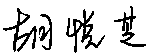 胡悦芝